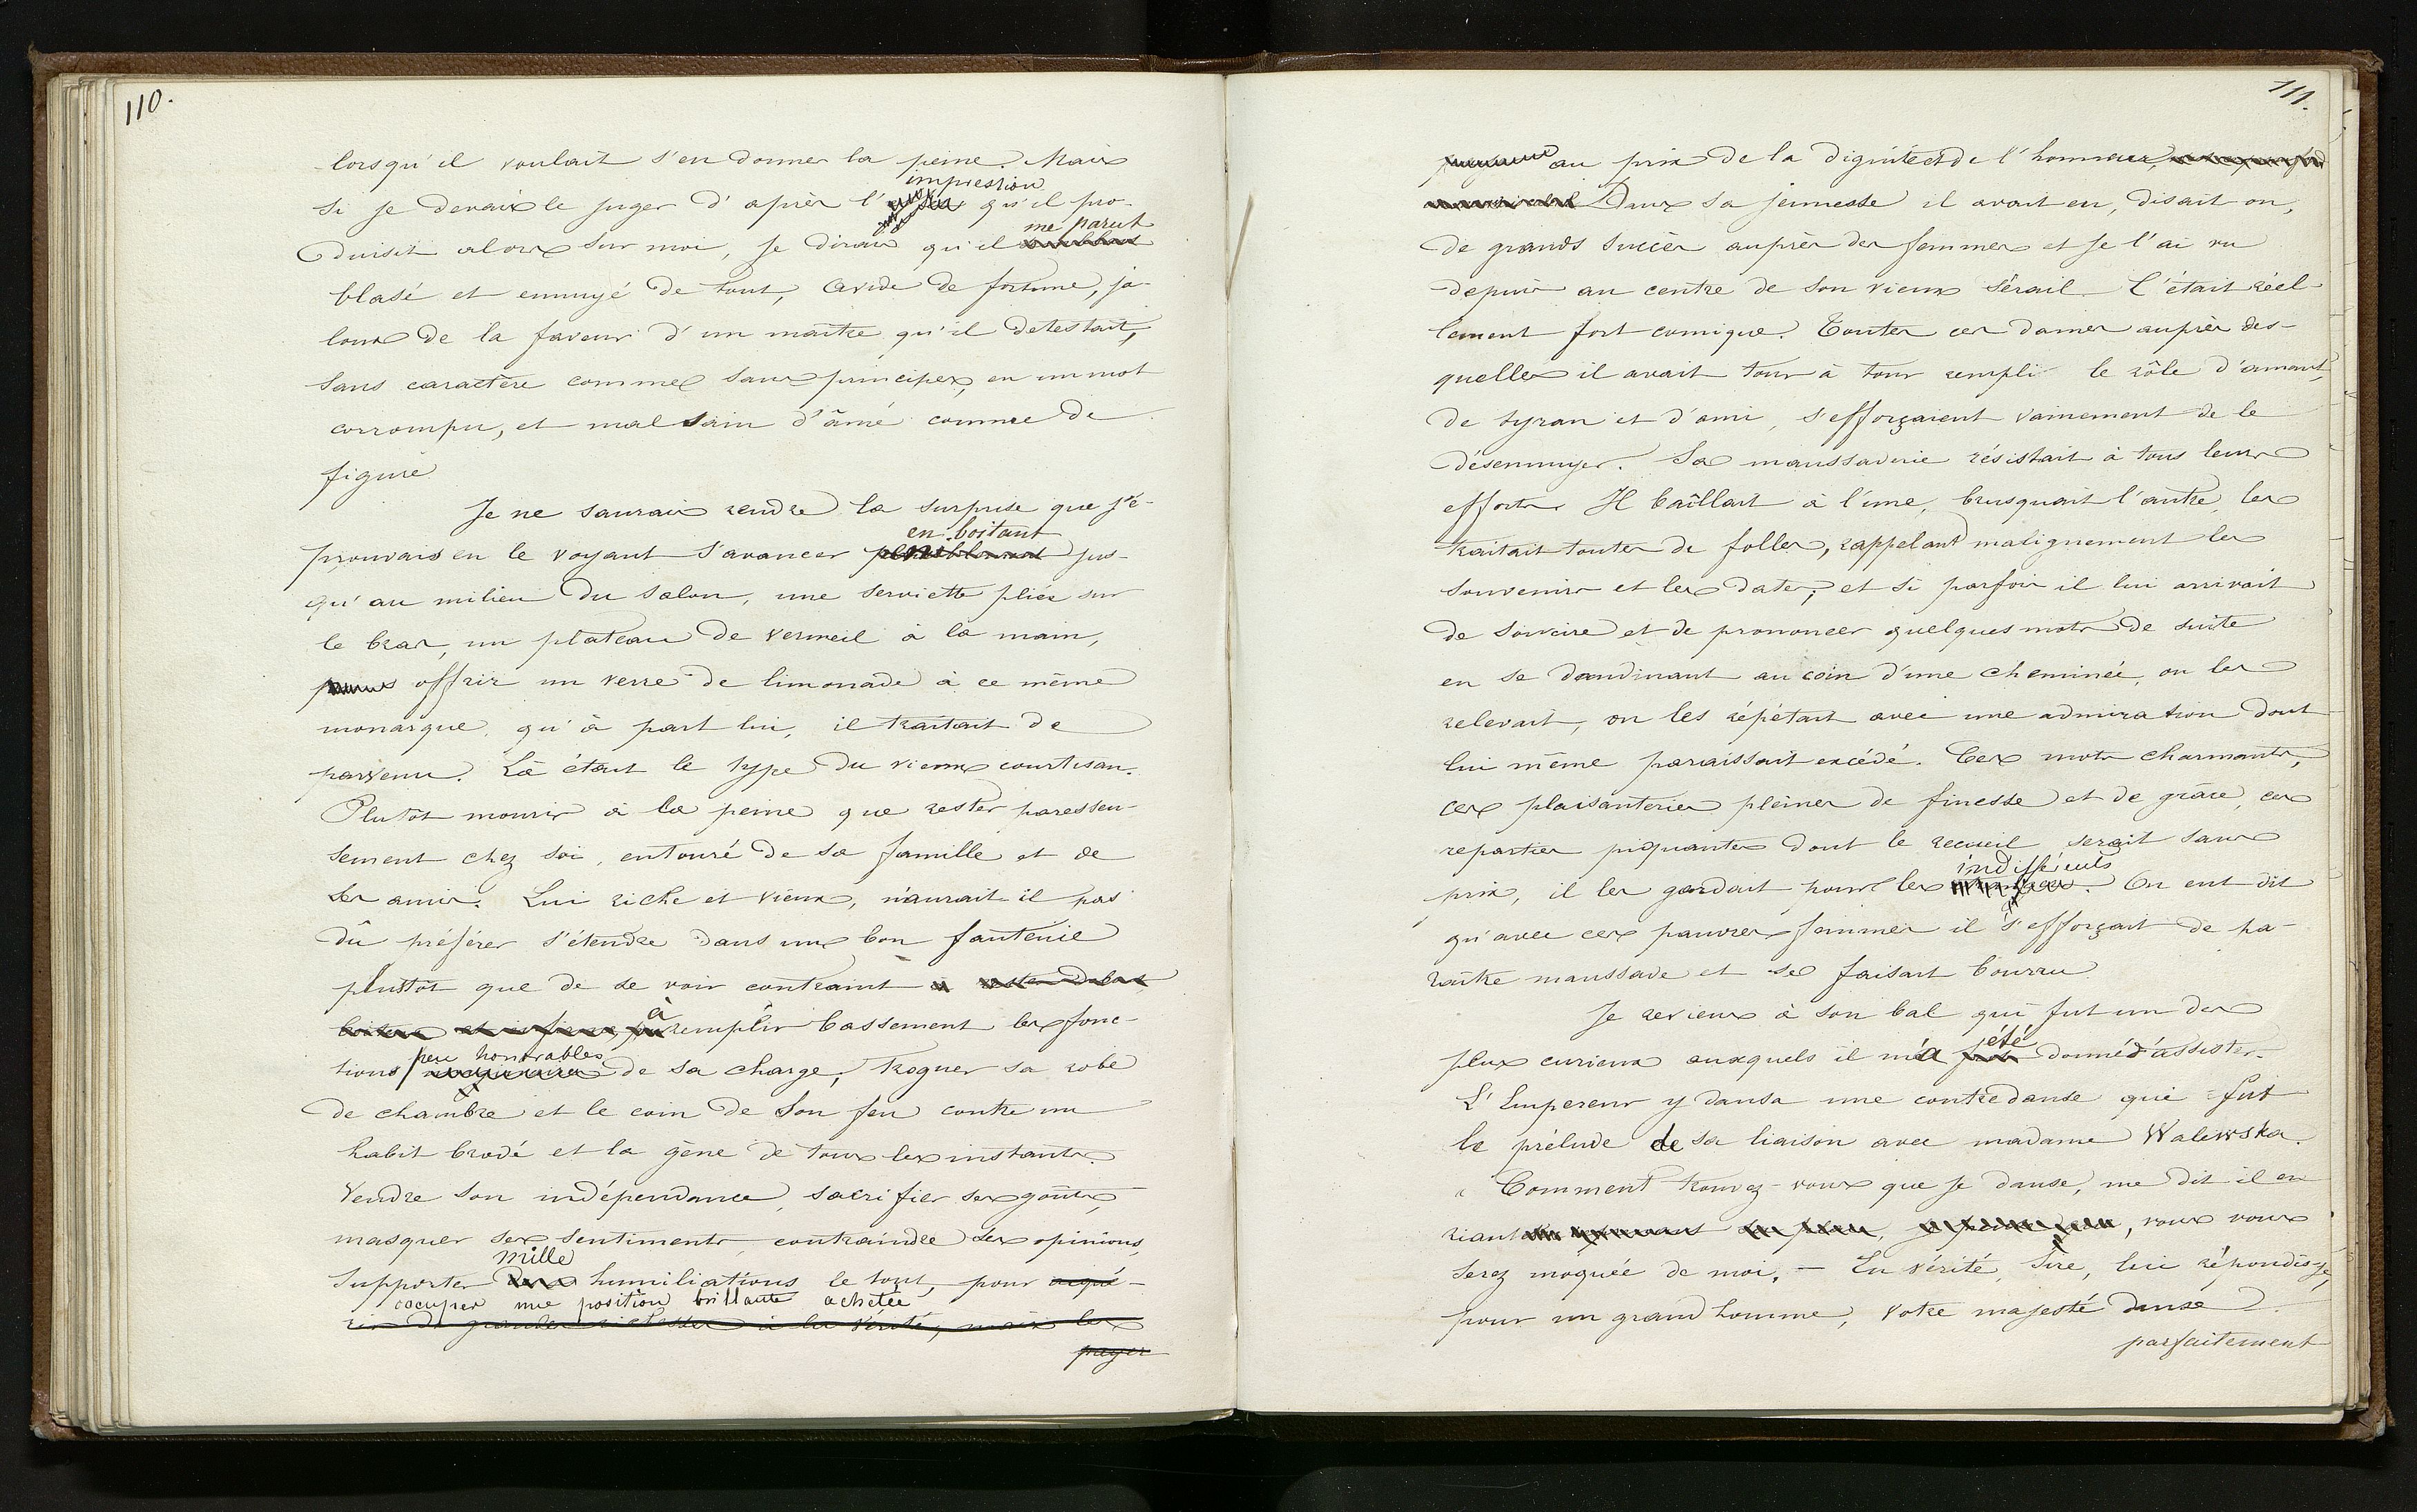 110.
lorsqu'il voulait s'en donner la peine. Mais
impression
si je devais le juger d'après l' qu'il pro-
me parut
duisit alors sur moi, je dirais qu'il semblait
blasé et ennuyé de tout, avide de fortune, ja-
loux de la faveur d'un maître qu'il detestait,
sans caractère comme sans principes, en un mot
corrompu, et mal sain d'âme comme de
figure
Je ne saurais rendre la surprise que j'é-
en boitant
prouvais en le voyant s'avancer péniblement jus-
qu'au milieu du salon, une serviette pliée sur
le bras, un plateau de vermeil à la main,
pour offrir un verre de limonade à ce même
monarque, qu'à part lui, il traitait de
parvenu. Là était le type du vieux courtisan.
Plutôt mourir à la peine que rester paresseu-
sement chez soi, entouré de sa famille et de
ses amis. Lui riche et vieux, n'aurait-il pas
dû préférer s'étendre dans un bon fauteuil
plustôt que de se voir contraint à rester debout
à
remplir bassement les fonc-
peu honorables
tions de sa charge, troquer sa robe
de chambre et le coin de son feu contre un
habit brodé et la gène de tous les instants.
Vendre son indépendance, sacrifier ses goûts,
masquer ses sentiments, contraindre ses opinions,
mille
supporter des humiliations le tout, pour acqué-
occuper une position brillante achetée
rir de grandes richesses à la vérité, mais les
payer
111.
au prix de la dignité et de l'honneur,
Dans sa jeunesse il avait eu, disait on,
de grands succès auprès des femmes et je l'ai vu
depuis au centre de son vieux sérail. C'était réel-
lement fort comique. Toutes ces dames auprès des-
quelles il avait tour à tour rempli le rôle d'amant,
de tyran et d'ami, s'efforçaient vainement de le
désennuyer. Sa maussaderie résistait à tous leurs
efforts. Il baîllait à l'une, brusquait l'autre, les
traitait toutes de folles, rappelant malignement les
souvenirs et les dates; et si parfois il lui arrivait
de sourire et de prononcer quelques mots de suite
en se dandinant au coin d'une cheminée, on les
relevait, on les répétait avec une admiration dont
lui même paraissait excédé. Ces mots charmants,
ces plaisanteries pleines de finesse et de grâce, ces
reparties piquantes dont le recueil serait sans
indifférents
prix, il les gardait pour les. On eut dit
qu'avec ces pauvres femmes il s'efforçait de pa-
raître maussade et se faisait bourru
Je reviens à son bal qui fut un des
été
plus curieux auxquels il m'a fut donné d'assister.
L'Empereur y dansa une contredanse qui fut
le prélude de sa liaison avec madame Walewska.
« Comment trouvez-vous que je danse, me dit il en
riant, vous vous
serez moquée de moi. — En vérité, Sire, lui répondis-je,
pour un grand homme, votre majesté danse
parfaitement